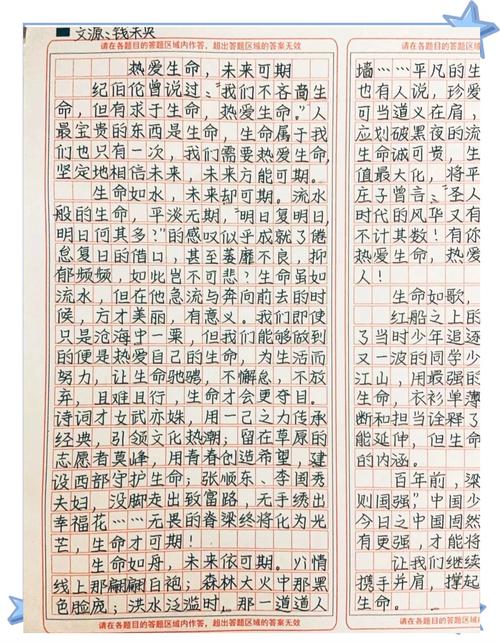 文源:钱未央
请在各题目的答题区域内作答，超出答题区域的答案无效
热爱生命，未来可期
纪伯伦曾说过:“我们不吝啬生
命，但有求于生命，热爱生命。”人
最宝贵的东西是生命，生命属于我
们也只有一次，我们需要热爱生命，
坚定地相信未来，未来方能可期。
生命如水，未来却可期。流水
般的生命，平淡无期，“明日复明日，
明日何其多？”的感叹似乎成就了倦
怠复日的借口，甚至萎靡不良，抑
郁频频，如此岂不可悲？生命虽如
流水，但在他急流与奔向前去的时
候，方才美丽，有意义。我们即使
只是沧海中一粟，但我们能够做到
的便是热爱自己的生命，为生活而
努力，让生命驰骋，不懈怠，不放
弃，且难且行，生命才会更夺目。
诗词才女武亦姝，用一己之力传承
经典，引领文化热潮；留在草原的
志愿者莫峰，用青春创造希望，建
设西部守护生命；张顺东、李国秀
夫妇，没脚走出致富路，无手绣出
幸福花……无畏的脊梁终将化为光
芒，生命才可期！
生命如舟，未来依可期。火情
线上那翩翩白袍；森林大火中那黑
色脸庞；洪水泛滥时，那一道道人
请在各题目的答题区域内作答，超出答题区域的答案无效
请在各题目的答题区
墙……平凡的生
也有人说，珍爱
可当道义在肩，
应划破黑夜的流
生命诚可贵，生
值最大化，将平
庄子曾言:“圣人
时代的风华又有
不计其数！有你
热爱生命，热爱
人！
生命如歌，
红船之上的
了当时少年追逐
又一波的同学少
江山，用最强的
生命，衣衫单薄
断和担当诠释了
能延伸，但生命
的内涵。
百年前，梁
则国强，”中国少
今日之中国周然
有更强，才能将
让我们继续
携手并肩，撑起
生命。
请在各题目的答题区